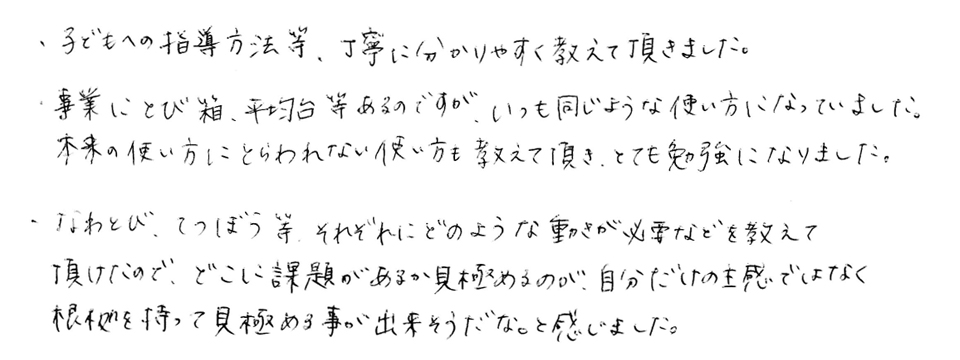 ・子どもへの指導方法等、丁寧に分かりやすく教えて頂きました。
・事業にとび箱、平均台等あるのですが、いつも同じような使い方になっていました。
本来の使い方にとらわれない使い方も教えて頂き、とても勉強になりました。
・なわとび、てつぼう等、それぞれにどのような動きが必要などを教えて
頂けたので、どこに課題があるか見極めるのが、自分だけの主感ではなく
根拠を持って見極める事が出来そうだな。と感じました。